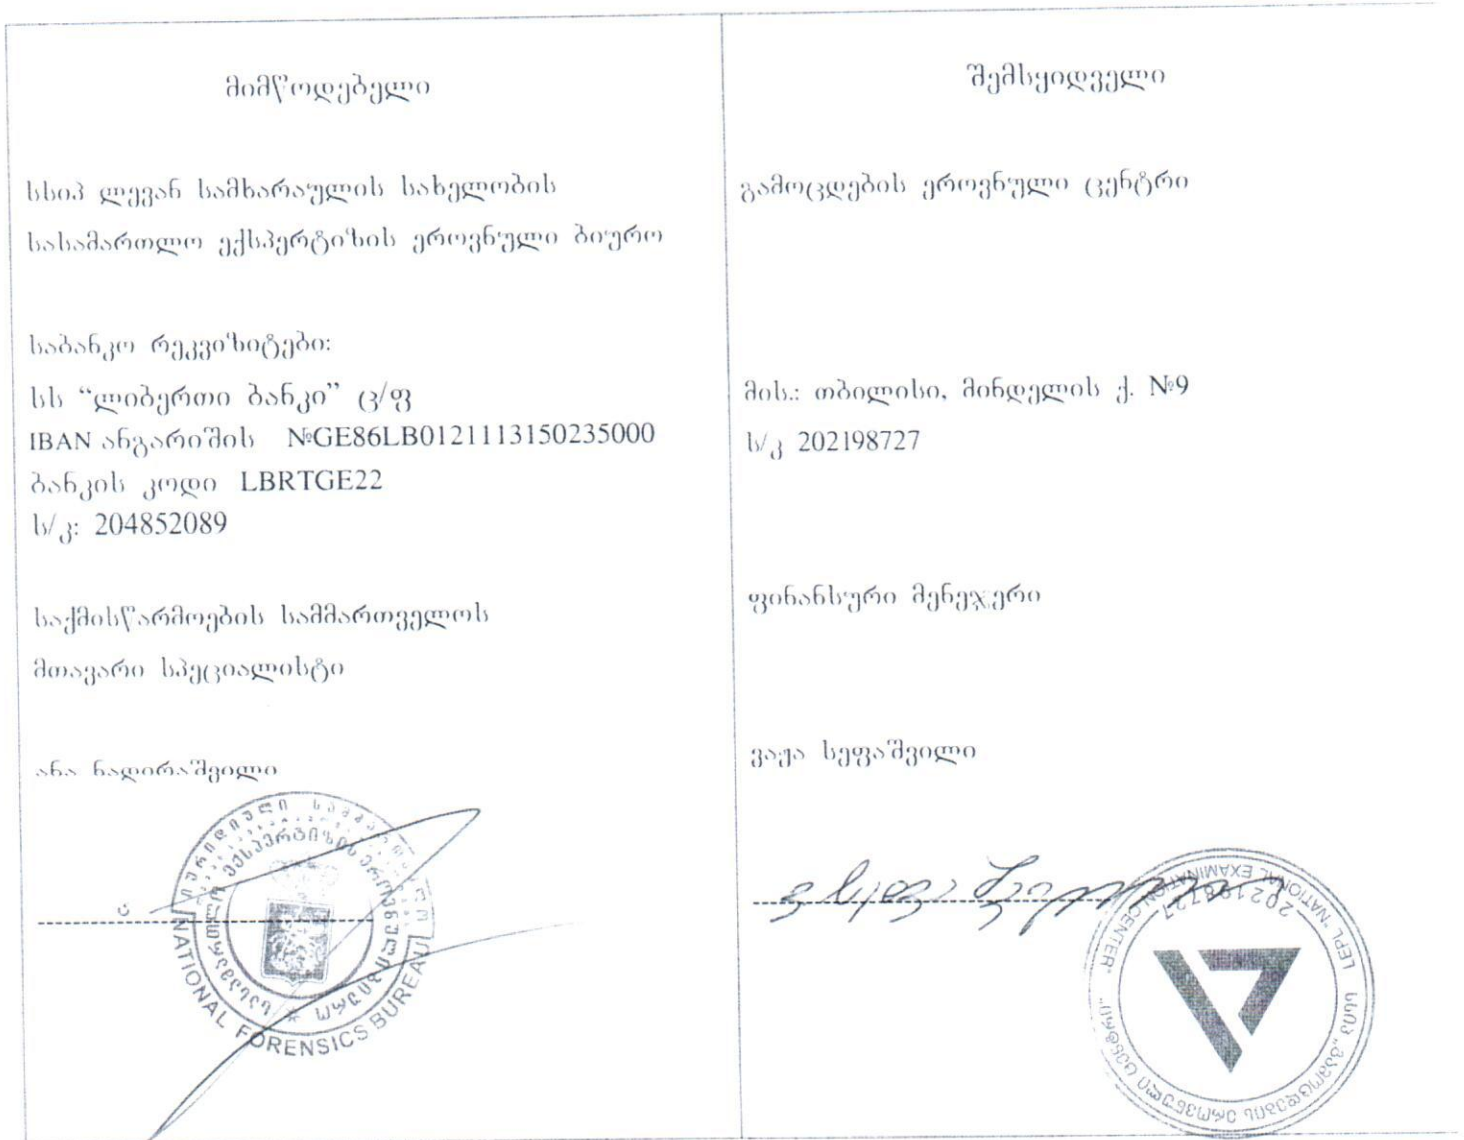 მიმწოდებელი
სსიპ ლევან სამხარაულის სახელობის
სასამართლო ექსპერტიზის ეროვნული ბიურო
საბანკო რეკვიზიტები:
სს “ლიბერთი ბანკი” ც/ფ
IBAN ანგარიშის №GE86LB0121113150235000
ბანკის კოდი LBRTGE22
ს/კ: 204852089
საქმისწარმოების სამმართველოს
მთავარი სპეციალისტი
ანა ნადირაშვილი
NATIONAL FORENSICS BUREAU
შემსყიდველი
გამოცდების ეროვნული ცენტრი
მის.: თბილისი, მინდელის ქ. №9
ს/კ 202198727
ფინანსური მენეჯერი
ვაჟა სეფაშვილი
ვ სეფაშვილი
LEPL "NATIONAL EXAMINATION CENTER"
202198727
სსიპ „გამოცდების ეროვნული ცენტრი“